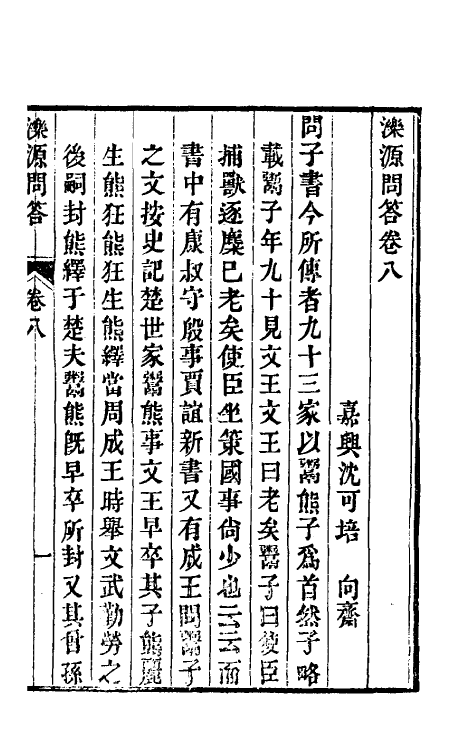 濼源問答卷八
嘉興沈可培　向齋
問子書今所傳者九十三家以鬻熊子爲首然子略
載鬻子年九十見文王文王曰老矣鬻子曰使臣
捕獸逐麋已老矣使臣坐策國事尙少也云云而
書中有康叔守殷事賈誼新書又有成王問鬻子
之文按史記楚世家鬻熊事文王早卒其子熊麗
生熊狂熊狂生熊繹當周成王時舉文武勤勞之
後嗣封熊繹于楚夫鬻熊旣早卒所封又其曾孫
濼源問答
卷八
一